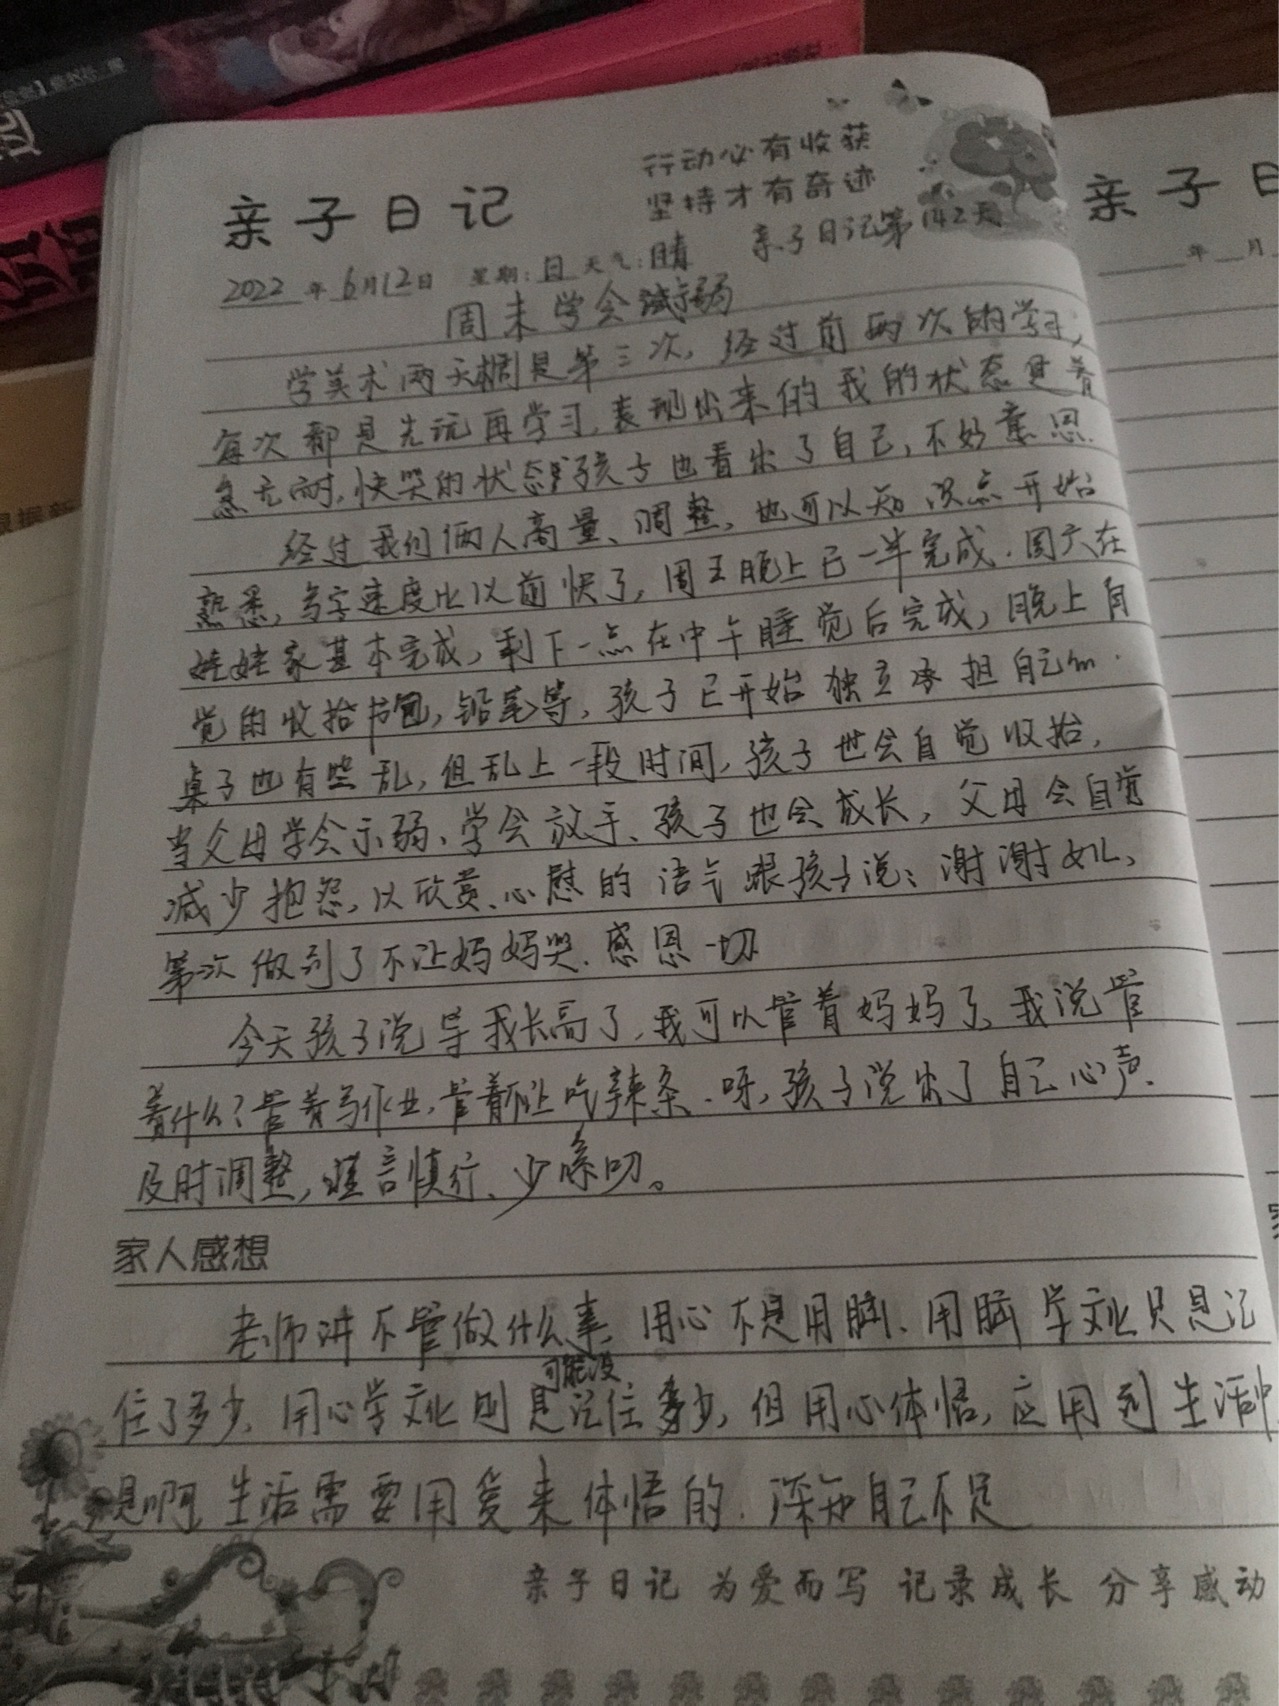 行动必有收获
坚持才有奇迹
亲子日记
亲子日
亲子日记第142天
2022年6月12日 星期:日 天气:晴
年 月
周末学会示弱
学美术两天棚是第三次,经过前两次的学习,
每次都是先玩再学习,表现出来的我的状态是着
急无耐,快哭的状态,孩子也看出了自己,不好意思.
经过我们俩人商量、调整,也可以知识点开始
熟悉,写字速度比以前快了,周五晚上已一半完成.周六在
姥姥家基本完成,剩下一点在中午睡觉后完成,晚上自
觉的收拾书包,铅笔等,孩子已开始独立承担自己的.
桌子也有些乱,但乱上一段时间,孩子也会自觉收拾,
当父母学会示弱、学会放手、孩子也会成长,父母会自觉
减少抱怨,以欣赏、心慰的语气跟孩子说:谢谢女儿、
第次做到了不让妈妈哭.感恩一切
今天孩子说等我长高了,我可以管着妈妈了、我说管
着什么?管着写作业,管着不让吃辣条.呀,孩子说出了自己心声.
及时调整,谨言慎行、少唠叨。
家人感想
老师讲不管做什么事、用心不是用脑、用脑学文化只是记
住了多少,用心学文化则是可能没记住多少,但用心体悟,应用到生活中
是啊,生活需要用爱来体悟的.深知自己不足
亲子日记 为爱而写 记录成长 分享感动